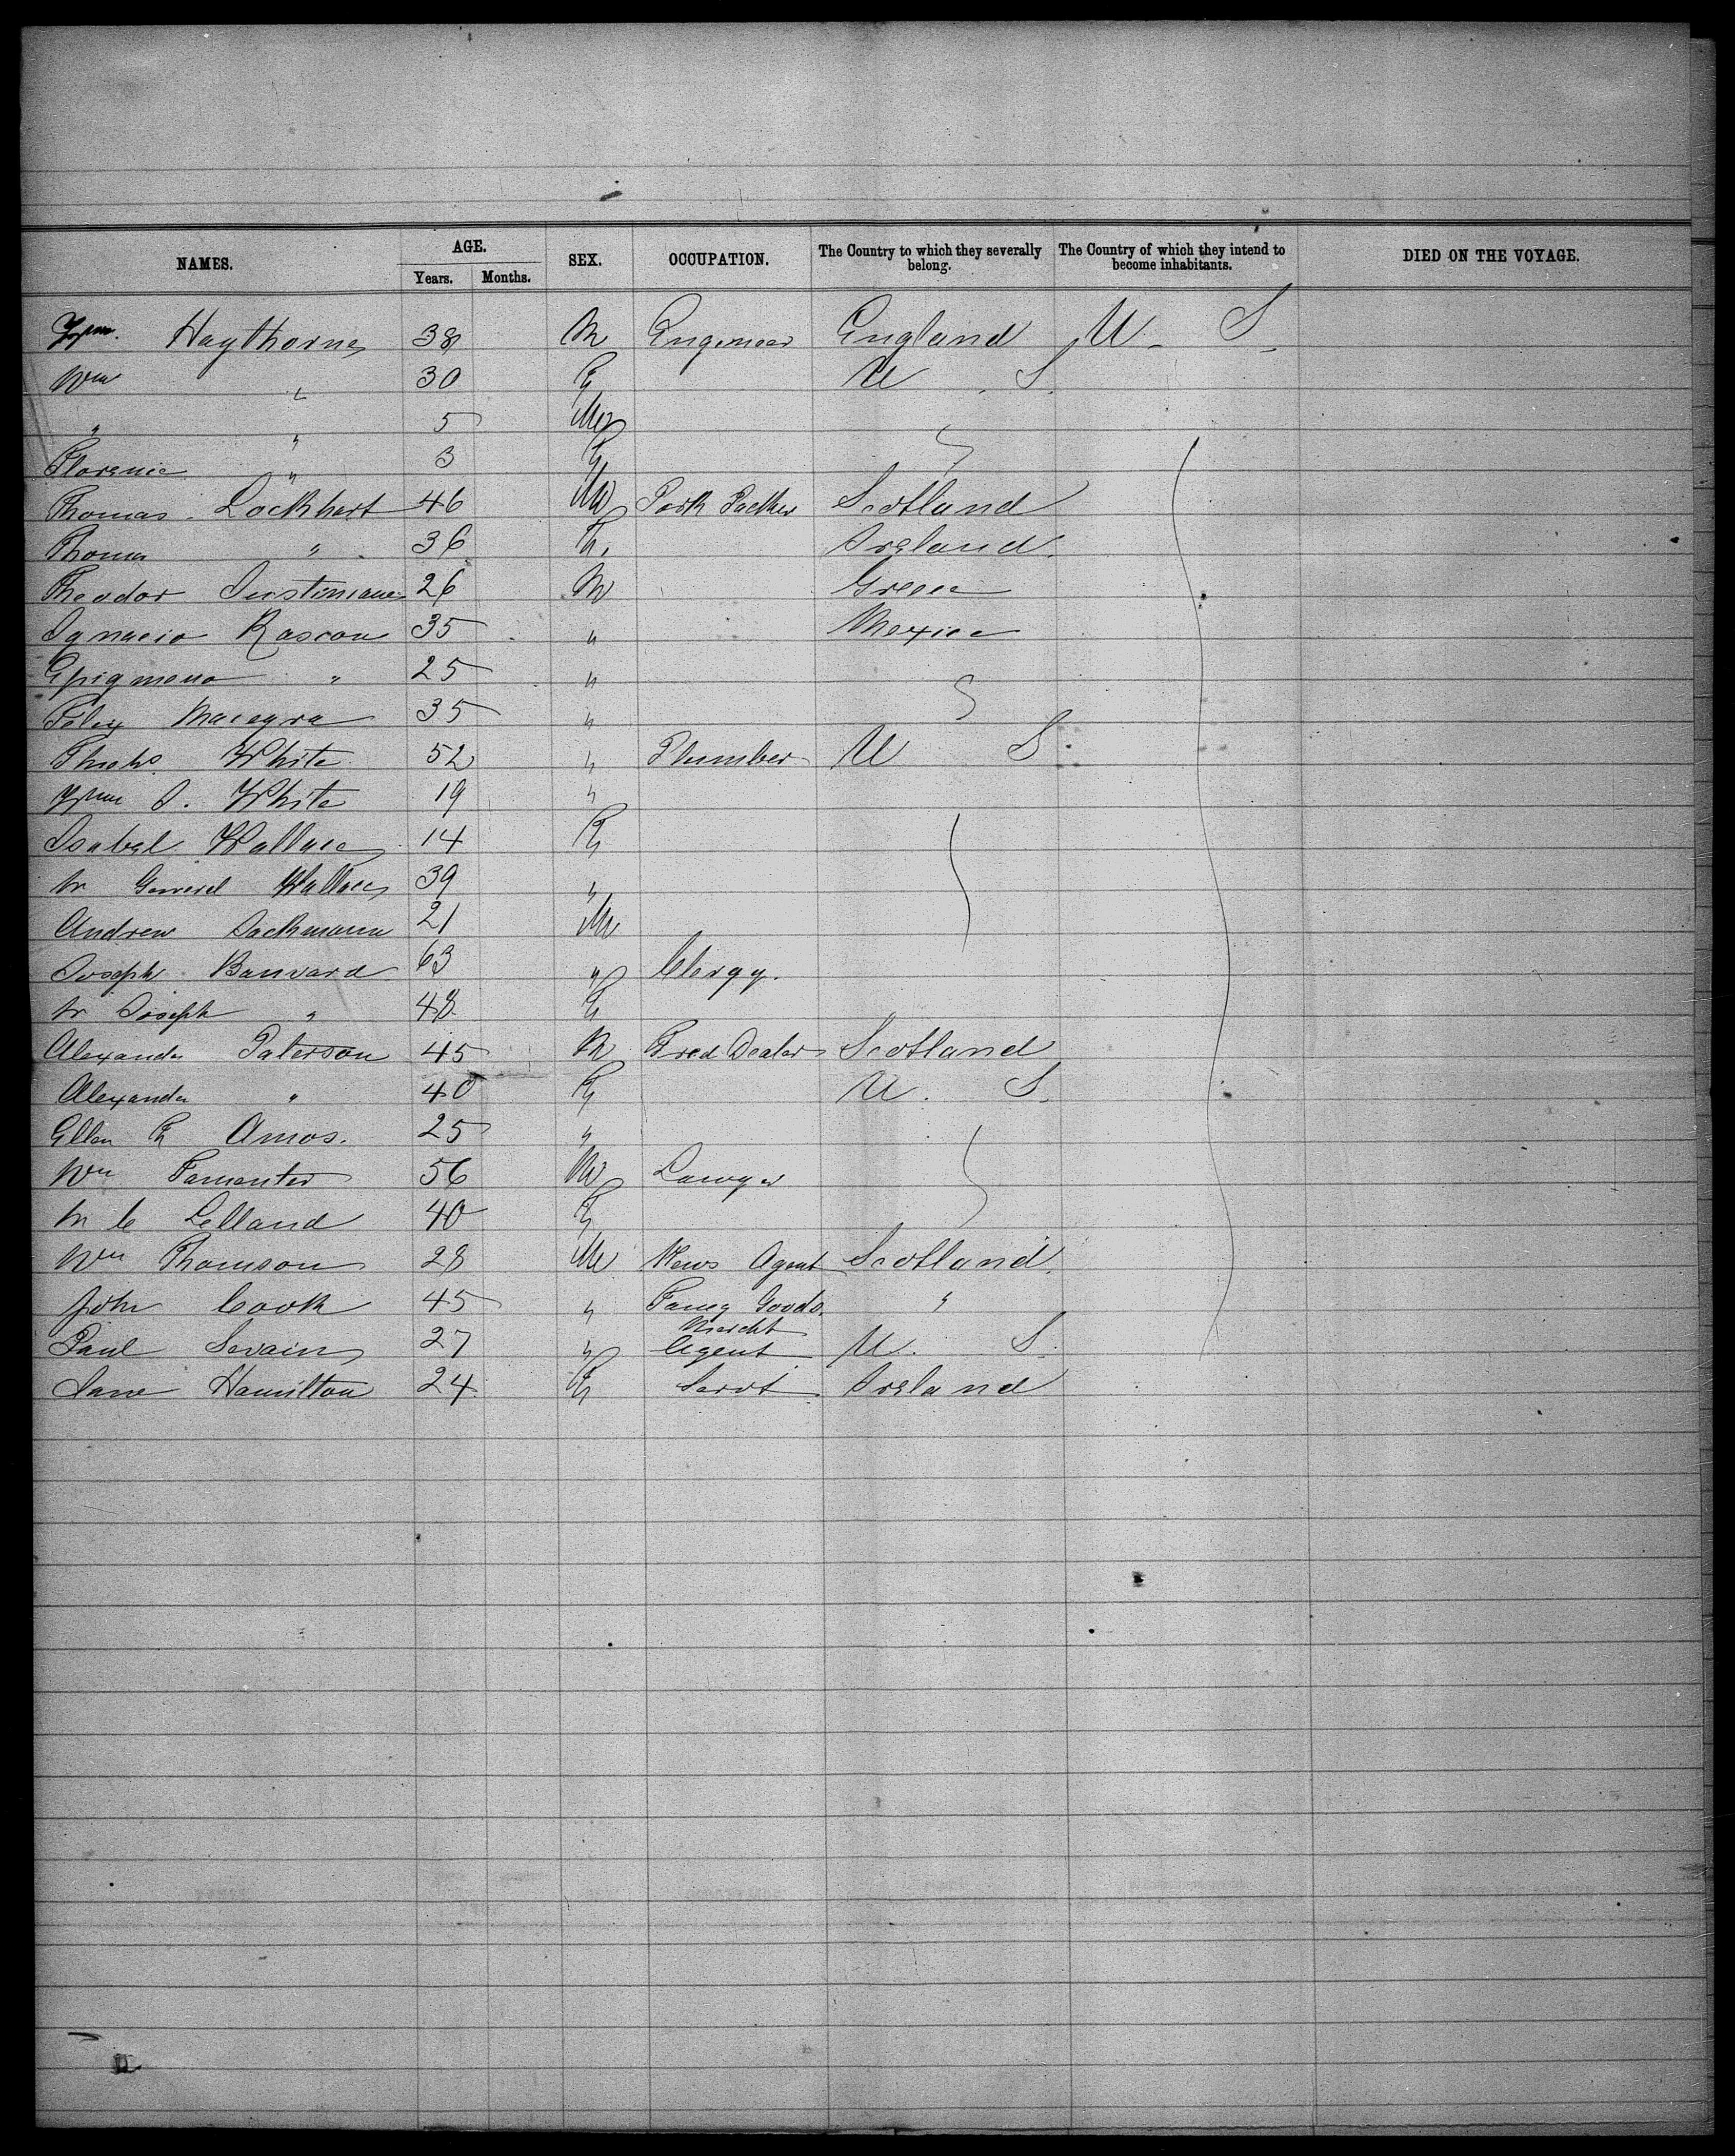 NAMES. AGE. SEX. OCCUPATION. The Country to which they severally belong. The Country of which they intend to become inhabitants. DIED ON THE VOYAGE.
Years. Months.
Wm. Haythorne 38 M Engineer England U. S.
Wm " 30 F U S.
" " 5 M
Florence " 3 F
Thomas Lockhart 46 M Pork Packer Scotland
Thomas " 36 F. Ireland.
Theodor 26 M Greece
Ignacio Rascon 35 " Mexico
Epigmeno " 25 "
Felix 35 "
White 52 " Plumber U S.
Wm J. White 19 "
Isabel Wallace 14 F
General Wallace 39 "
Andrew Jackmann 21 M
Joseph Banvard 63 " Clergy.
Joseph " 48 F
Alexander Paterson 45 M Dealer Scotland
Alexander " 40 F U. S.
Ellen F Amos. 25 "
Wm 56 M Lawyer
Lelland 40 F
Wm Thomson 28 M News Agent Scotland.
John Cook 45 " Fancy Goods. "
Mercht
Paul 27 " Agent U. S.
Jane Hamilton 24. F Servt Ireland